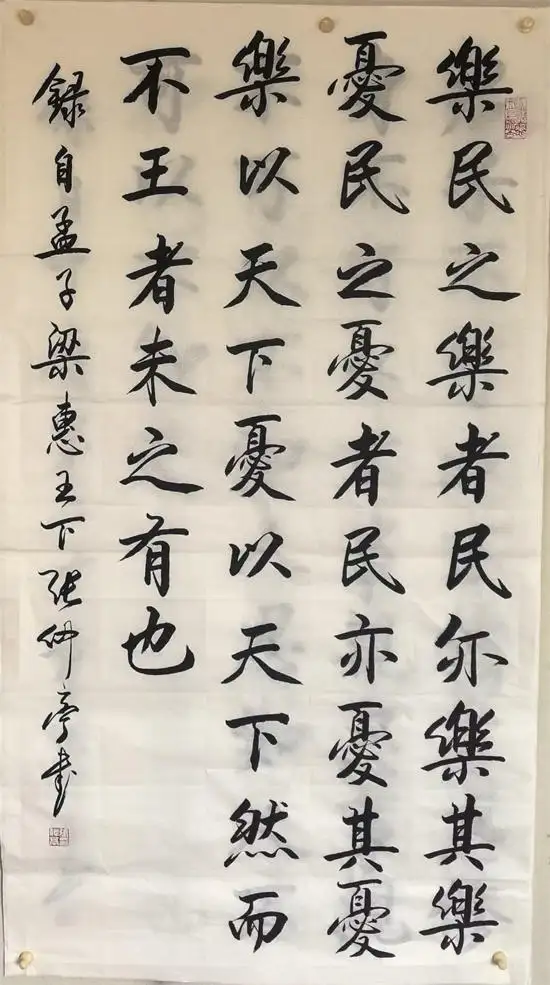 樂民之樂者民亦樂其樂
憂民之憂者民亦憂其憂
樂以天下憂以天下然而
不王者未之有也
録自孟子梁惠王下張仲亭書